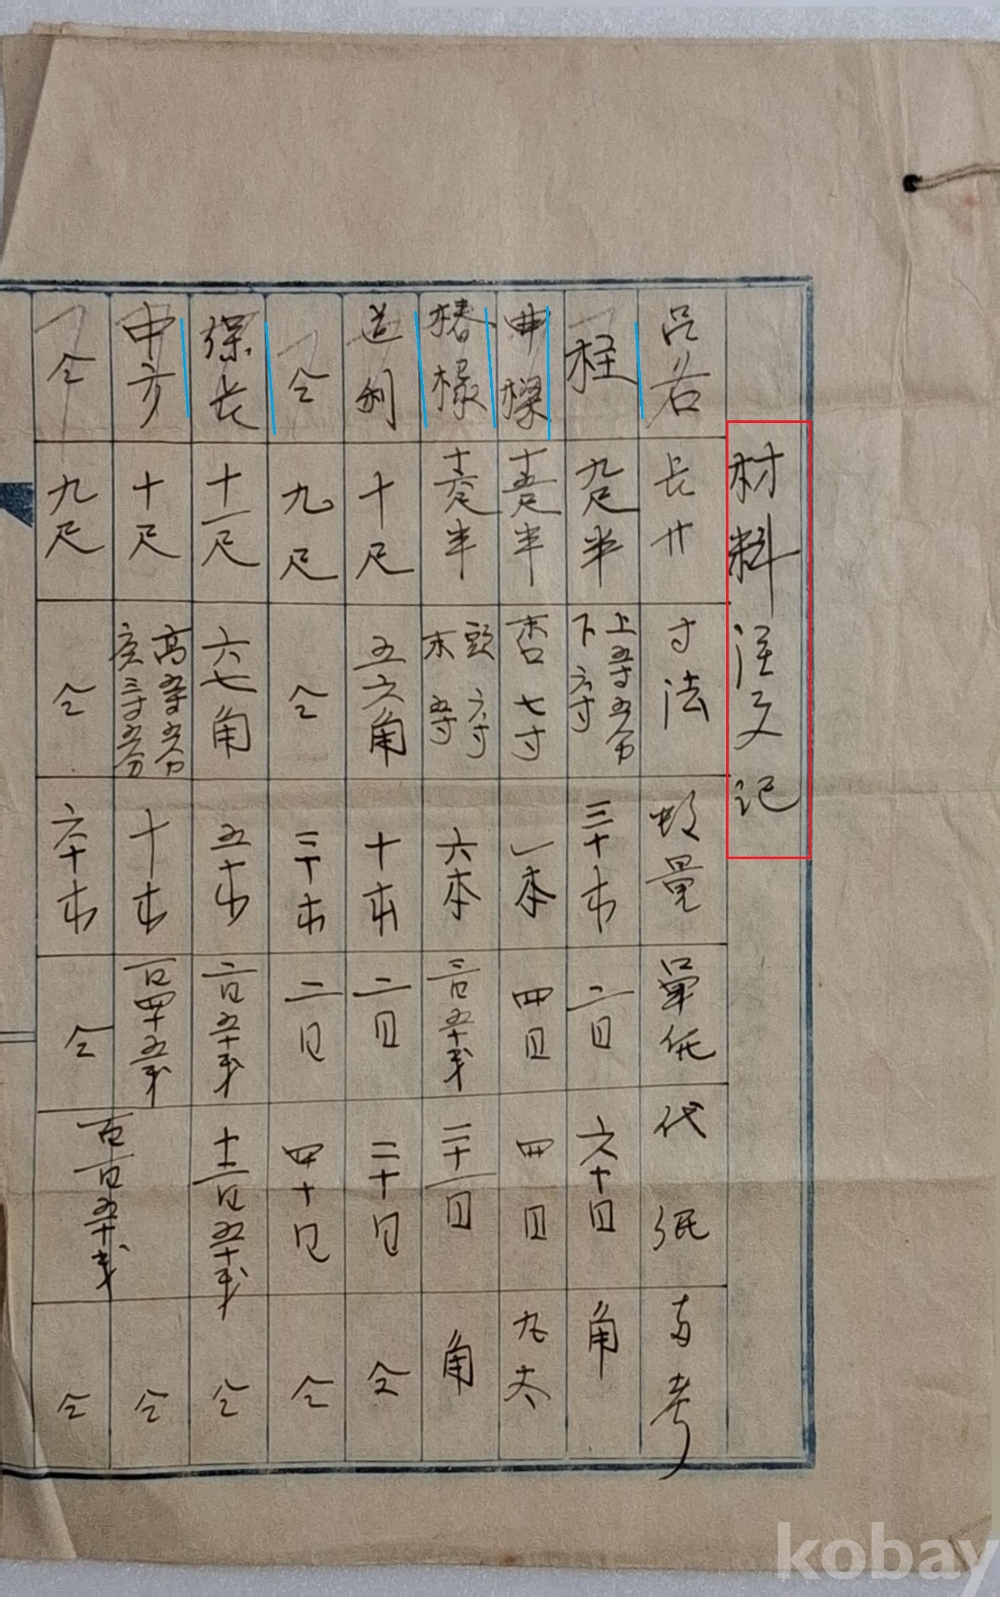 材料注文記
品名 長サ 寸法 數量 單價 代価 備考
柱 九尺半 上五寸五分 下六寸 三十本 二円 六十円 角
曲樑 十五尺半 末口七寸 一本 四円 四円 九太
椿椽 十六尺半 頭六寸 末五寸 六本 三円五十戋 二十一円 角
道利 十尺 五六角 十本 二円 二十円 仝
仝 九尺 仝 二十本 二円 四十円 仝
保長 十一尺 六七角 五本 二円五十戋 十二円五十戋 仝
中方 十尺 高五寸五分 広三寸五分 十本 一円四十五戋 仝
仝 九尺 仝 六十本 仝 仝
kobay